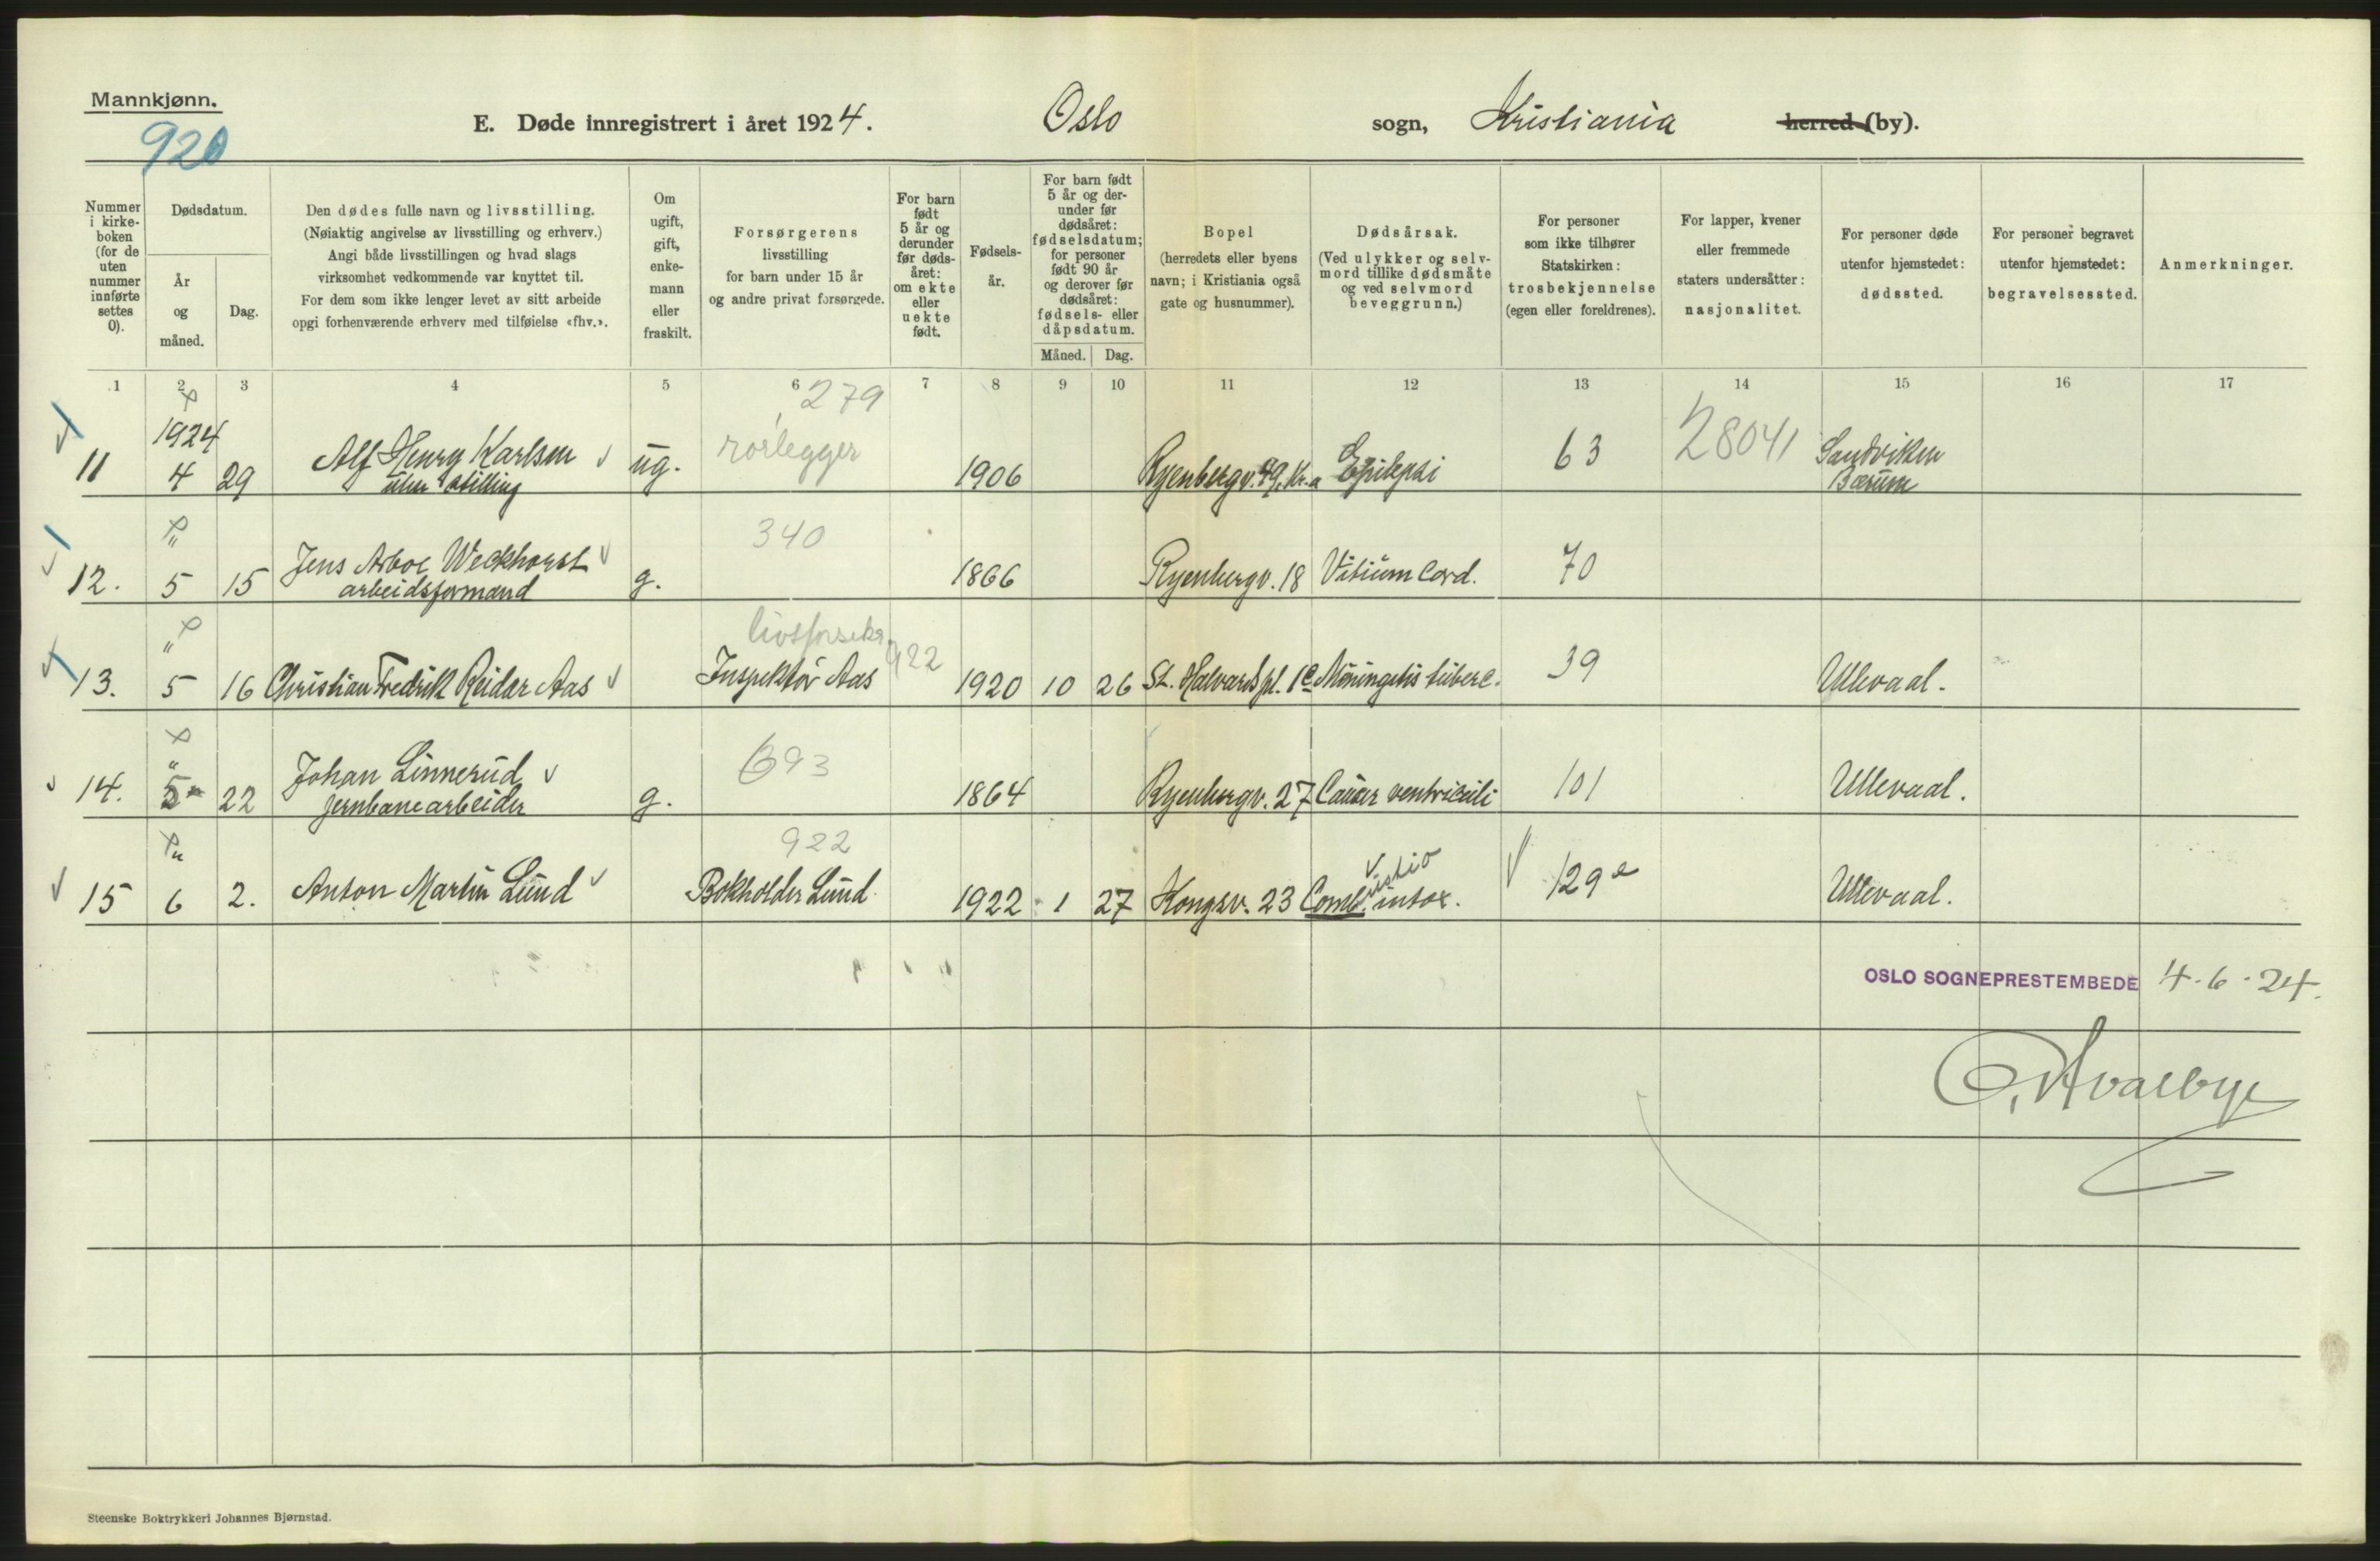 Mannkjønn.
920
E. Døde innregistrert i året 1924. Oslo sogn, Kristiania herred (by).
Nummer i kirke-boken (for de uten nummer innførte settes 0).
Dødsdatum.
År og måned.
Dag.
Den dødes fulle navn og livsstilling.
(Nøiaktig angivelse av livsstilling og erhverv.)
Angi både livsstillingen og hvad slags
virksomhet vedkommende var knyttet til.
For dem som ikke lenger levet av sitt arbeide
opgi forhenværende erhverv med tilføielse «fhv.».
Om ugift, gift, enke-mann eller fraskilt.
Forsørgerens
livsstilling
for barn under 15 år
og andre privat forsørgede.
For barn født 5 år og derunder før døds-året: om ekte eller uekte født.
Fødsels-år.
For barn født 5 år og der-under før dødsåret: fødselsdatum; for personer født 90 år og derover før dødsåret: fødsels- eller dåpsdatum.
Måned. Dag.
Bopel
(herredets eller byens
navn; i Kristiania også
gate og husnummer).
Dødsårsak.
(Ved ulykker og selv-
mord tillike dødsmåte
og ved selvmord
beveggrunn.)
For personer
som ikke tilhører
Statskirken:
trosbekjennelse
(egen eller foreldrenes).
For lapper, kvener
eller fremmede
staters undersåtter:
nasjonalitet.
For personer døde
utenfor hjemstedet:
dødssted.
For personer begravet
utenfor hjemstedet:
begravelsessted.
Anmerkninger.
1 2 3 4 5 6 7 8 9 10 11 12 13 14 15 16 17
279
1924
11 4 29 Alf Henry Karlsen ug. rørlegger 1906 Ryenbergv. 49, Kr.a Epilepsi 63 28041 Sandviken
uten stilling Bærum
340
" Jens Arboe Weckhorst
12. 5 15 arbeidsformand g. 1866 Ryenbergv. 18 Vitium Cord. 70
" livsforsikr. 922
13. 5 16 Christian Fredrik Reidar Aas Inspektör Aas 1920 10 26 St. Halvards pl. 1c Meningitis tuberc. 39 Ullevaal.
" Johan Linnerud 693
14. 5 22 jernbanearbeider g. 1864 Ryenbergv. 27 Cancer ventriculi 101 Ullevaal.
" 922
15 6 2. Anton Martin Lund Bokholder Lund 1922 1 27 Kongsv. 23 Combustio intox. 129e Ullevaal.
OSLO SOGNEPRESTEMBEDE 4.6.24.
Steenske Boktrykkeri Johannes Bjørnstad.